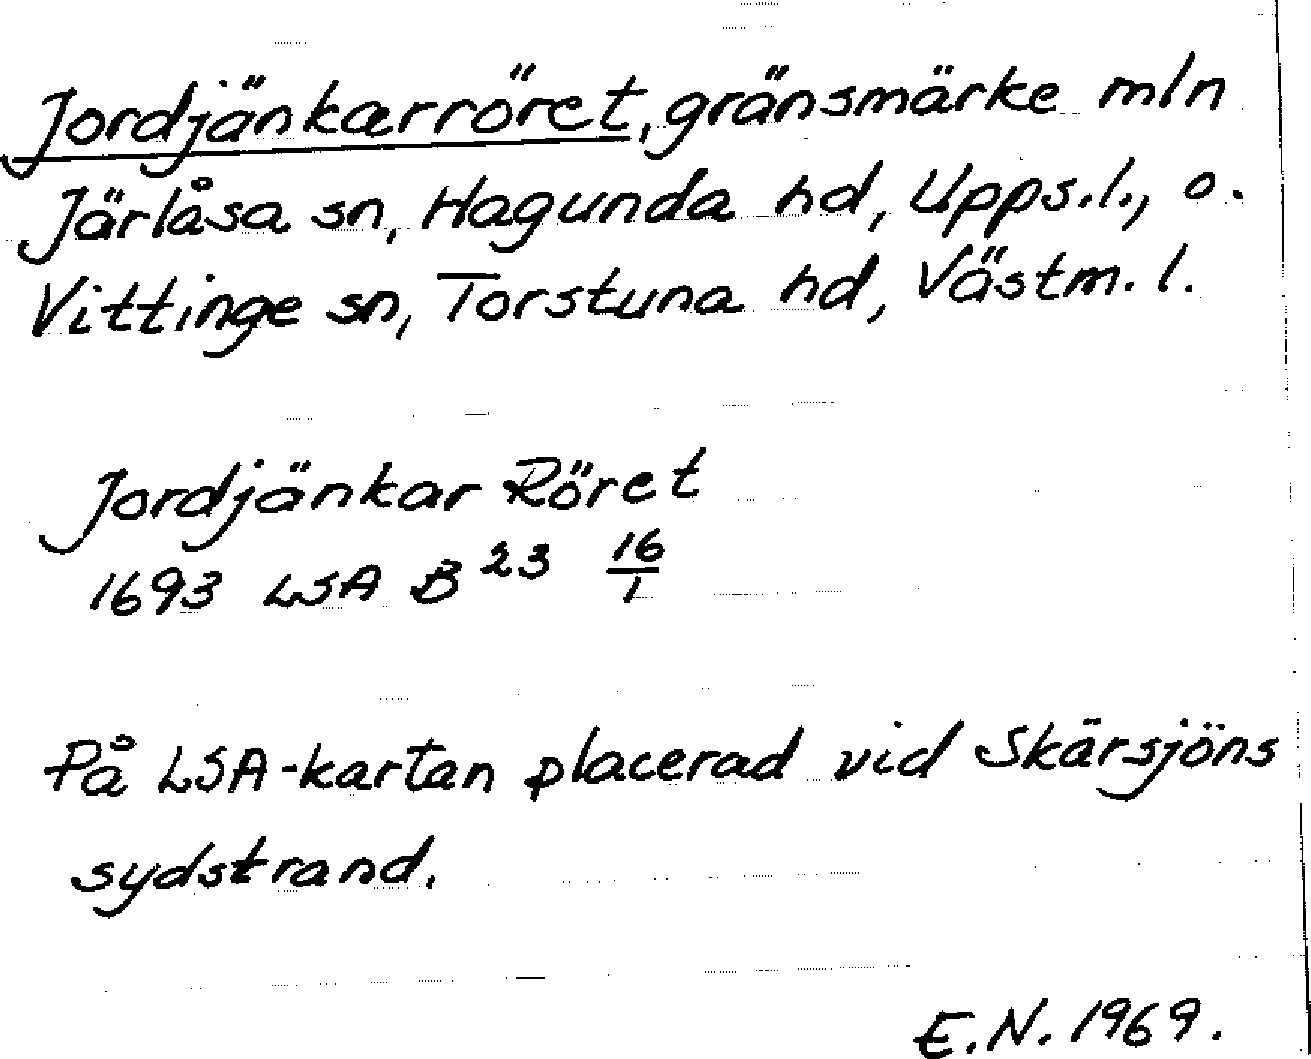 Jordjänkarröret, gränsmärke mln
Järlåsa sn, Hagunda hd, Upps.l., o.
Vittinge sn, Torstuna hd, Västm. l.
Jordjänkar Röret
1693 LSA B 23 16/1
På LSA-kartan placerad vid Skärsjöns
sydstrand.
E.N. 1969.